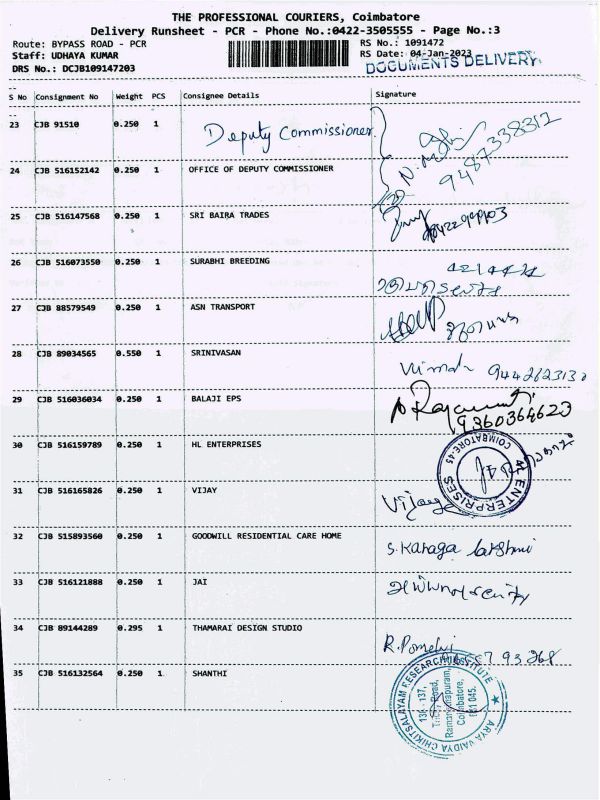 THE PROFESSIONAL COURIERS, Coimbatore
Delivery Runsheet - PCR - Phone No.:0422-3505555 - Page No.:3
Route: BYPASS ROAD - PCR
RS No.: 1091472
Staff: UDHAYA KUMAR
RS Date: 04-Jan-2023
DRS No.: DCJB109147203
DOCUMENTS DELIVERY
S No Consignment No Weight PCS Consignee Details Signature
23 CJB 91510 0.250 1 Deputy Commissioner
9487338312
24 CJB 516152142 0.250 1 OFFICE OF DEPUTY COMMISSIONER
25 CJB 516147568 0.250 1 SRI BAIRA TRADES
26 CJB 516073550 0.250 1 SURABHI BREEDING
27 CJB 88579549 0.250 1 ASN TRANSPORT
28 CJB 89034565 0.550 1 SRINIVASAN
29 CJB 516036034 0.250 1 BALAJI EPS
9360364623
30 CJB 516159789 0.250 1 HL ENTERPRISES
COIMBATORE-45
HL ENTERPRISES
31 CJB 516165826 0.250 1 VIJAY Vijay
32 CJB 515893560 0.250 1 GOODWILL RESIDENTIAL CARE HOME
33 CJB 516121888 0.250 1 JAI
34 CJB 89144289 0.295 1 THAMARAI DESIGN STUDIO
35 CJB 516132564 0.250 1 SHANTHI
ARYA VAIDYA CHIKITSALAYAM RESEARCH INSTITUTE
136 - 137,
Trichy Road,
Ramanathapuram,
Coimbatore,
641 045.